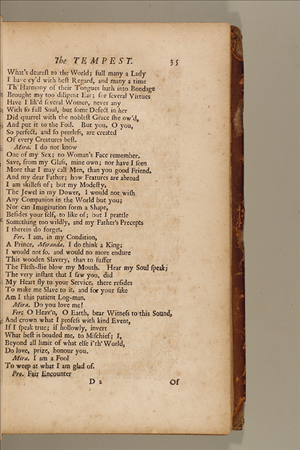 The TEMPEST. 35
What's dearest to the World; full many a Lady
I have ey'd with best Regard, and many a time
Th' Harmony of their Tongues hath into Bondage
Brought my too diligent Ear; for several Virtues
Have I lik'd several Women, never any
With so full Soul, but some Defect in her
Did quarrel with the noblest Grace she ow'd,
And put it to the Foil. But you, O you,
So perfect, and so peerless, are created
Of every Creatures best.
Mira. I do not know
One of my Sex; no Woman's Face remember,
Save, from my Glass, mine own; nor have I seen
More that I may call Men, than you good Friend,
And my dear Father; how Features are abroad
I am skilless of; but my Modesty,
The Jewel in my Dower, I would not wish
Any Companion in the World but you;
Nor can Imagination form a Shape,
Besides your self, to like of; but I prattle
Something too wildly, and my Father's Precepts
I therein do forget.
Fer. I am, in my Condition,
A Prince, Miranda, I do think a King;
I would not so, and would no more endure
This wooden Slavery, than to suffer
The Flesh-flie blow my Mouth. Hear my Soul speak;
The very instant that I saw you, did
My Heart fly to your Service, there resides
To make me Slave to it, and for your sake
Am I this patient Log-man.
Mira. Do you love me?
Fer. O Heav'n, O Earth, bear Witness to this Sound,
And crown what I profess with kind Event,
If I speak true; if hollowly, invert
What best is boaded me, to Mischief; I,
Beyond all limit of what else i'th' World,
Do love, prize, honour you.
Mira. I am a Fool
To weep at what I am glad of.
Pro. Fair Encounter
D 2 Of